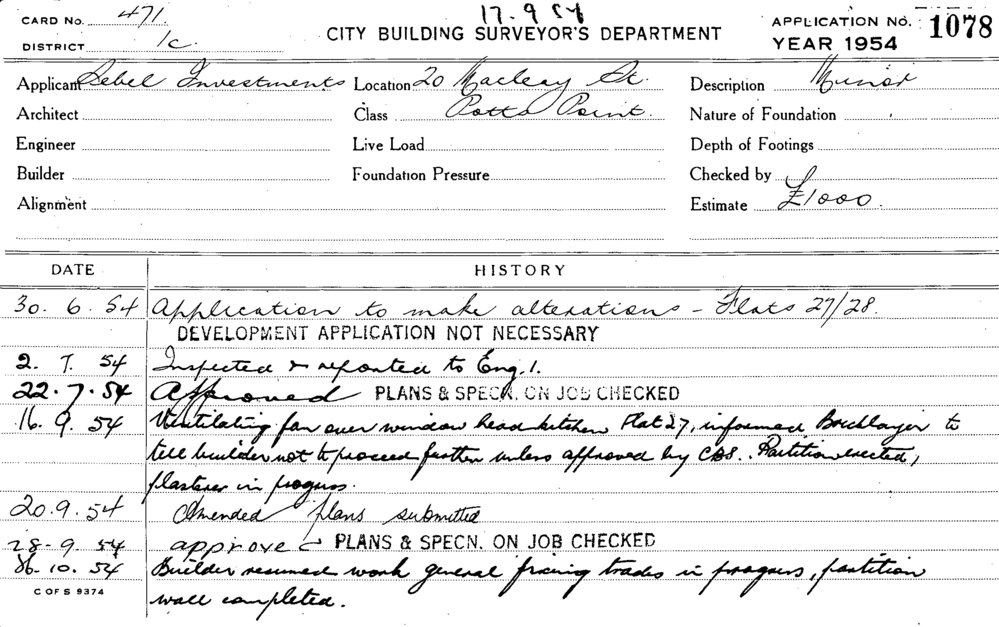 CARD No. 471.
17.9.54
APPLICATION No. 1078
DISTRICT 1c.
CITY BUILDING SURVEYOR'S DEPARTMENT
YEAR 1954
Applicant Sebel Investments Location 20 Macleay St. Description Minor
Architect Class Potts Point. Nature of Foundation
Engineer Live Load Depth of Footings
Builder Foundation Pressure Checked by
Alignment Estimate £1000.
DATE HISTORY
30. 6. 54 Application to make alterations - Flats 27/28.
DEVELOPMENT APPLICATION NOT NECESSARY
2. 7. 54 Inspected & reported to Eng. 1.
22.7.54 Approved PLANS & SPECN. ON JOB CHECKED
16. 9. 54 Ventilating fan over window head kitchen Flat 27, informed Bricklayer to
tell builder not to proceed further unless approved by CBS. Partition erected,
plasterer in progress.
20.9.54 Amended plans submitted
28-9. 54 approved PLANS & SPECN. ON JOB CHECKED
16.10.54 Builder resumed work general fixing trades in progress, partition
C OF S 9374
wall completed.